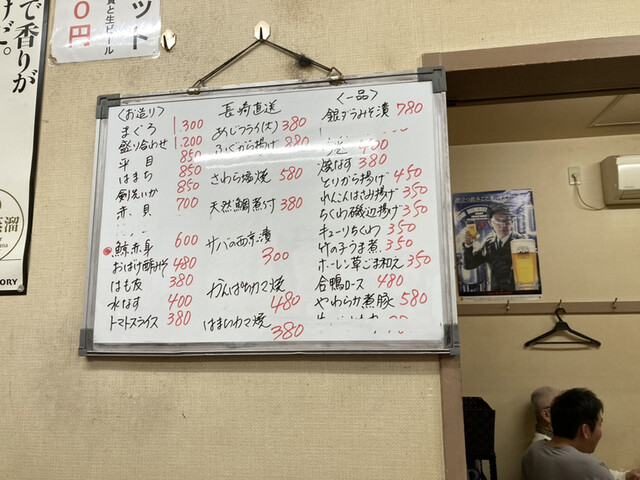 で香りが
ット
0円
貴と生ビール
<お造り>
まぐろ 1.300
盛り合わせ 1.200
平目 850
はまち 850
剣先いか 850
赤貝 700
鯨赤身 600
おばけ酢みそ 480
はも皮 380
水なす 400
トマトスライス 380
長崎直送
あじフライ(大) 380
ふぐから揚げ 880
さわら塩焼 580
天然鯛煮付 380
サバの西京漬 300
カマ焼 480
はまちカマ焼 380
<一品>
銀ダラみそ漬 780
400
焼なす 380
とりから揚げ 450
れんこんはさみ揚げ 350
ちくわ磯辺揚げ 350
キューリちくわ 350
竹の子うま煮 350
ホーレン草ごま和え 350
合鴨ロース 480
やわらか煮豚 580